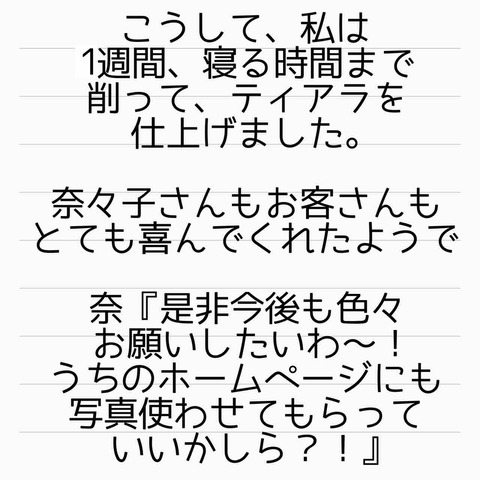 こうして、私は
1週間、寝る時間まで
削って、ティアラを
仕上げました。
奈々子さんもお客さんも
とても喜んでくれたようで
奈『是非今後も色々
お願いしたいわ〜！
うちのホームページにも
写真使わせてもらって
いいかしら？！』